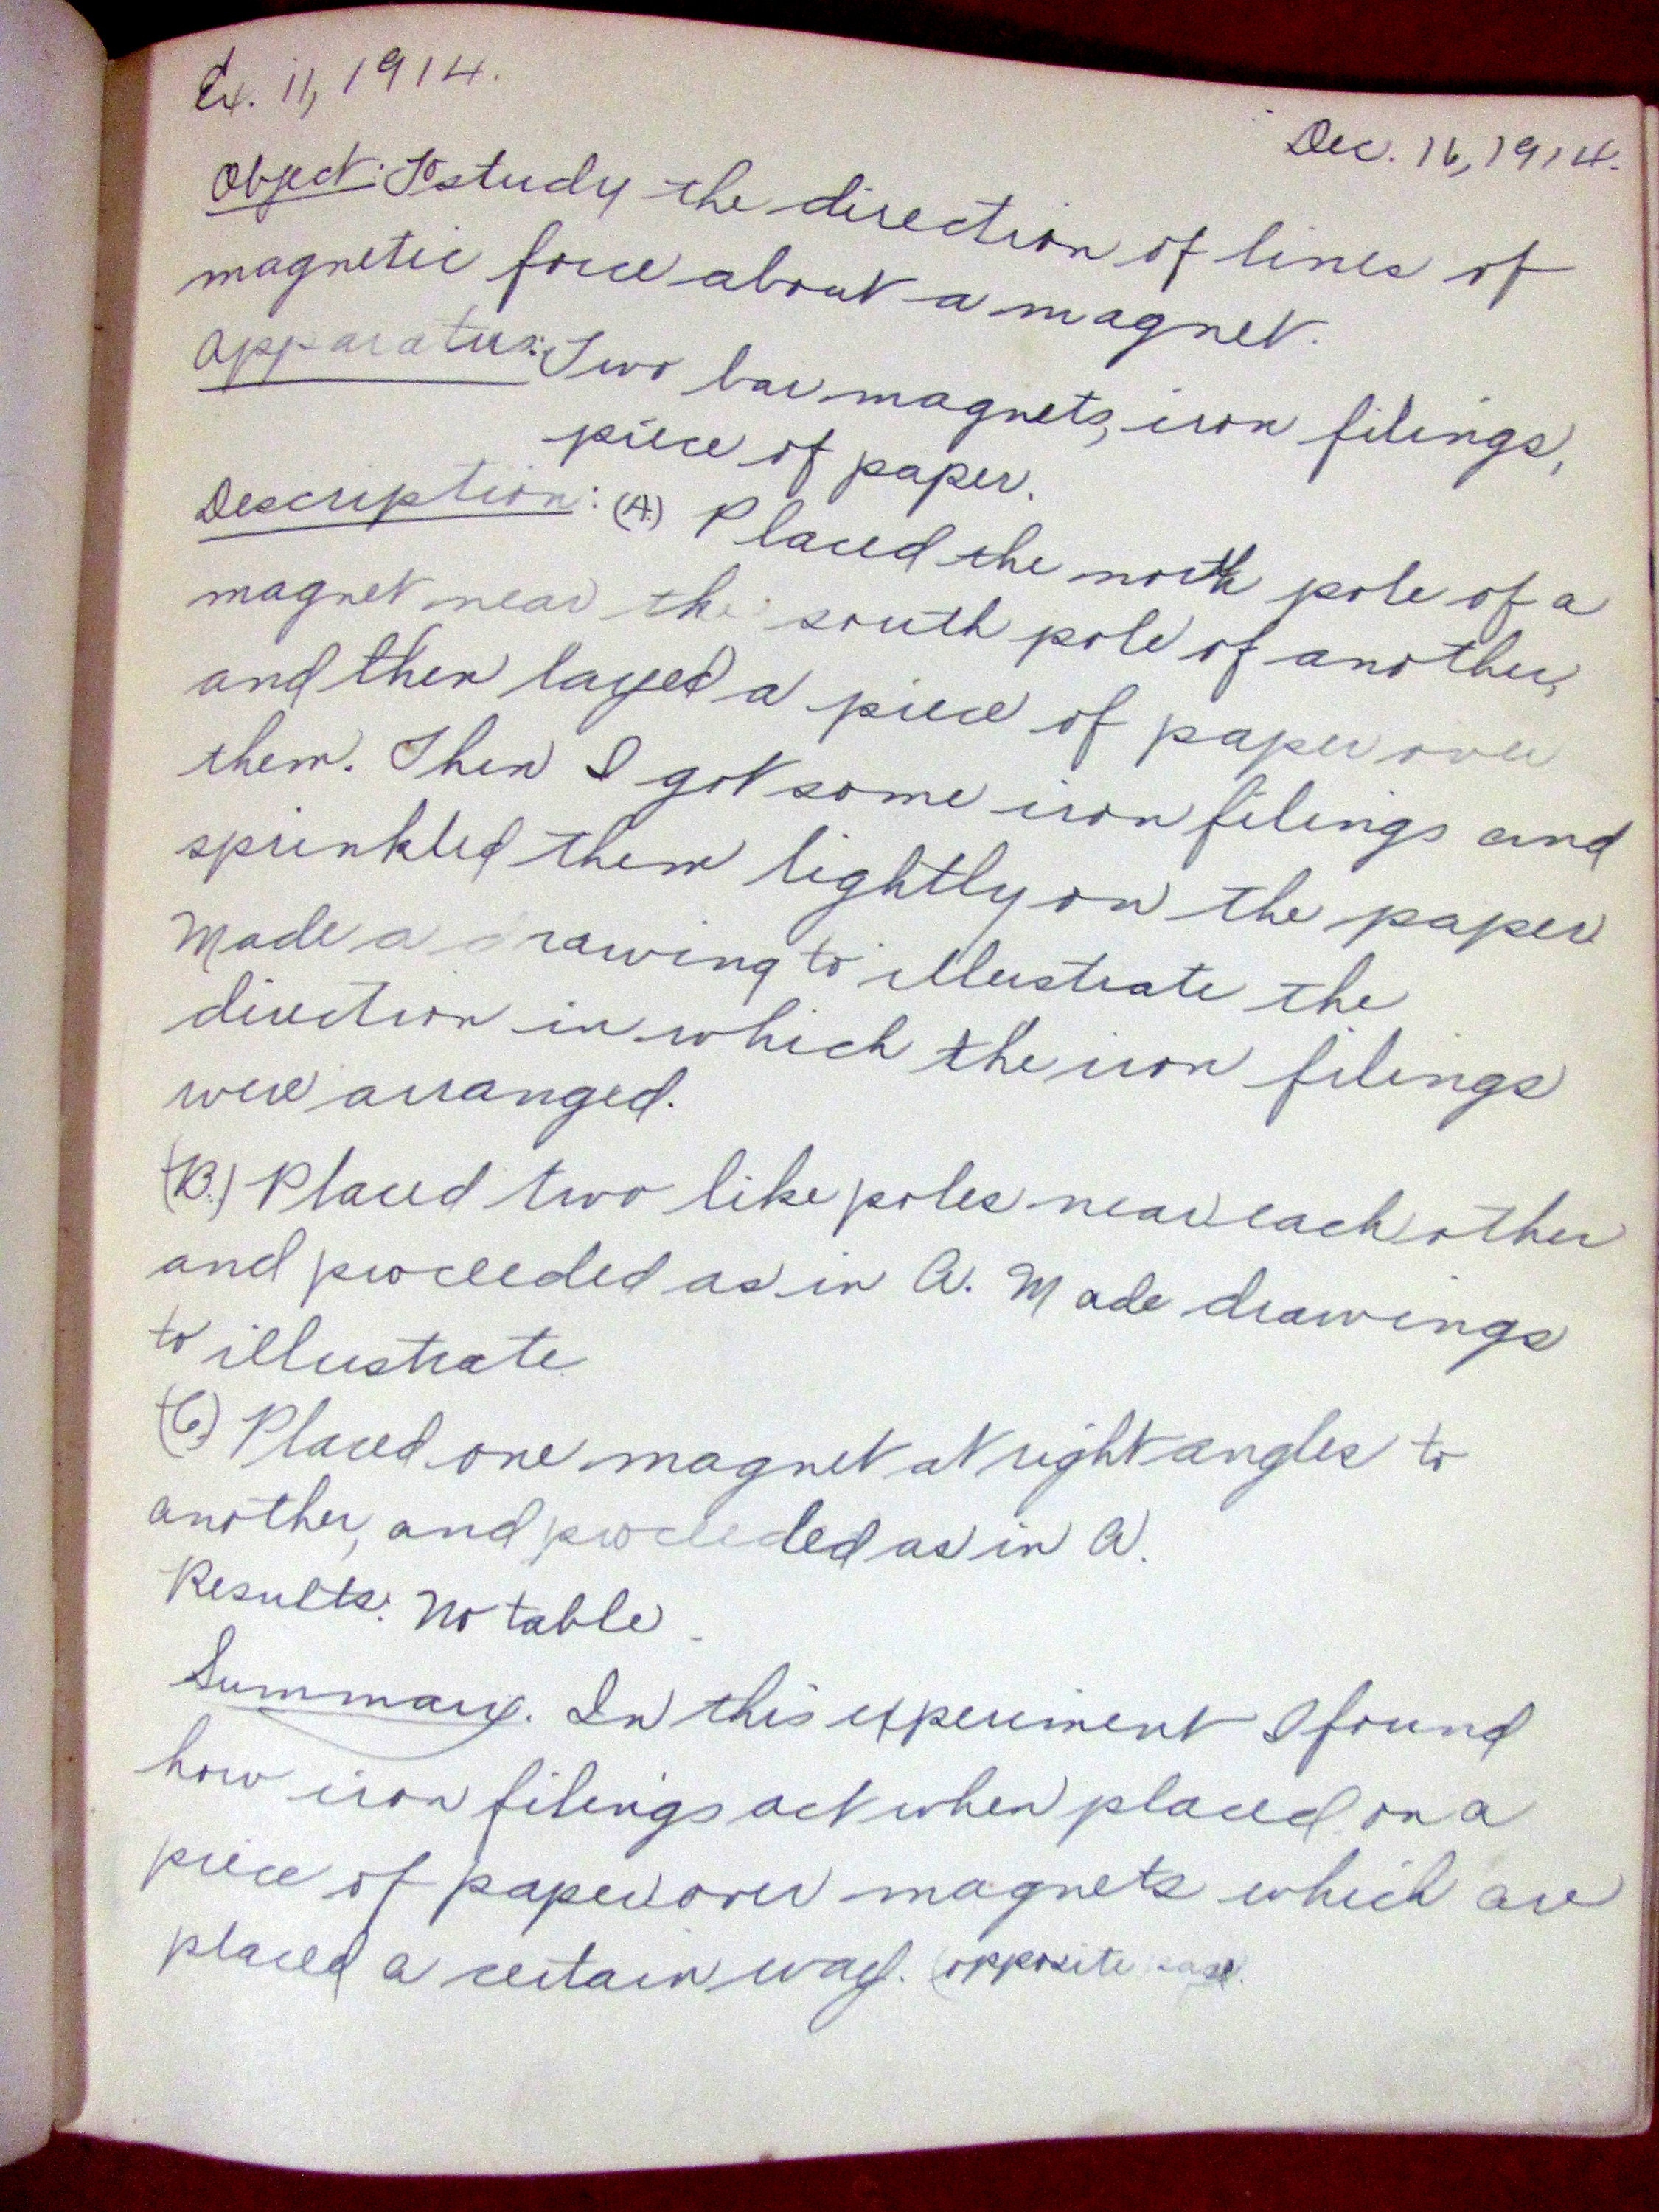 Ex. 11, 1914.
Dec. 16, 1914.
Object: To study the direction of lines of
magnetic force about a magnet.
Apparatus: Two bar magnets, iron filings,
piece of paper.
Description: (A.) Placed the north pole of a
magnet near the south pole of another,
and then layed a piece of paper over
them. Then I got some iron filings and
sprinkled them lightly on the paper
Made a drawing to illustrate the
direction in which the iron filings
were arranged.
(B.) Placed two like poles near each other
and proceeded as in A. Made drawings
to illustrate
(C.) Placed one magnet at right angles to
another, and proceeded as in A.
Results: No table.
Summary. In this experiment I found
how iron filings act when placed on a
piece of paper over magnets which are
placed a certain way. (opposite page.